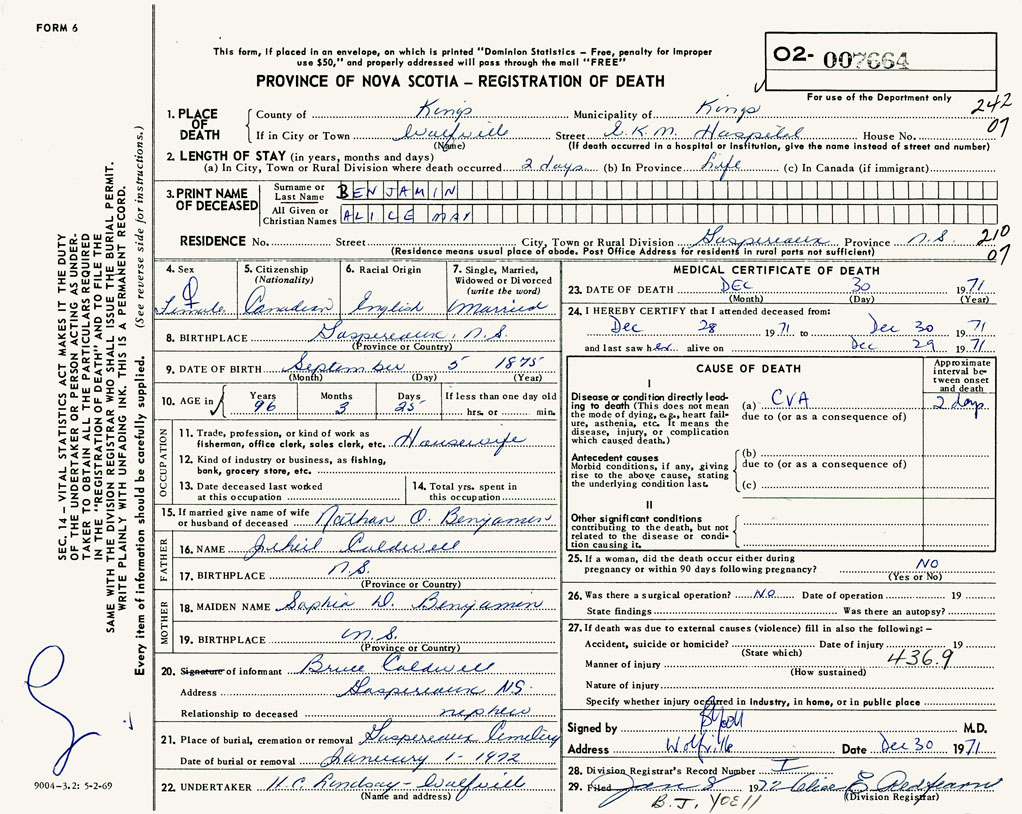 FORM 6
This form, if placed in an envelope, on which is printed "Dominion Statistics – Free, penalty for improper
use $50," and properly addressed will pass through the mail "FREE"
PROVINCE OF NOVA SCOTIA – REGISTRATION OF DEATH
02- 007664
For use of the Department only
242
07
1. PLACE OF DEATH
County of Kings Municipality of Kings
If in City or Town Wolfville Street E.K.M. Hospital House No.
(Name) (If death occurred in a hospital or institution, give the name instead of street and number)
2. LENGTH OF STAY (in years, months and days)
(a) In City, Town or Rural Division where death occurred 2 days (b) In Province Life (c) In Canada (if immigrant)
3. PRINT NAME OF DECEASED
Surname or Last Name BENJAMIN
All Given or Christian Names ALICE MAY
RESIDENCE No. Street City, Town or Rural Division Gaspereaux Province N.S.
(Residence means usual place of abode. Post Office Address for residents in rural parts not sufficient)
210
07
4. Sex Female
5. Citizenship (Nationality) Canadian
6. Racial Origin English
7. Single, Married, Widowed or Divorced (write the word) Married
8. BIRTHPLACE Gaspereaux, N.S.
(Province or Country)
9. DATE OF BIRTH September 5 1875
(Month) (Day) (Year)
10. AGE in Years 96 Months 3 Days 25 If less than one day old hrs. or min.
OCCUPATION
11. Trade, profession, or kind of work as
fisherman, office clerk, sales clerk, etc. Housewife
12. Kind of industry or business, as fishing,
bank, grocery store, etc.
13. Date deceased last worked at this occupation
14. Total yrs. spent in this occupation
15. If married give name of wife
or husband of deceased Nathan O. Benjamin
FATHER
16. NAME Jehiel Caldwell
17. BIRTHPLACE N.S.
(Province or Country)
MOTHER
18. MAIDEN NAME Sophia D. Benjamin
19. BIRTHPLACE N.S.
(Province or Country)
20. Signature of informant Bruce Caldwell
Address Gaspereaux NS.
Relationship to deceased nephew
21. Place of burial, cremation or removal Gaspereaux Cemetery
Date of burial or removal January 1-1972
22. UNDERTAKER H.C. Lindsay - Wolfville
(Name and address)
MEDICAL CERTIFICATE OF DEATH
23. DATE OF DEATH DEC 30 1971
(Month) (Day) (Year)
24. I HEREBY CERTIFY that I attended deceased from:
Dec 28 1971 to Dec 30 1971
and last saw her alive on Dec 29 1971
CAUSE OF DEATH
Approximate interval between onset and death
I
Disease or condition directly leading
to death (This does not mean
the mode of dying, e.g., heart failure,
asthenia, etc. It means the
disease, injury, or complication
which caused death.)
(a) CVA 2 days
due to (or as a consequence of)
Antecedent causes
Morbid conditions, if any, giving
rise to the above cause, stating
the underlying condition last.
(b)
due to (or as a consequence of)
(c)
II
Other significant conditions
contributing to the death, but not
related to the disease or condition
causing it.
25. If a woman, did the death occur either during
pregnancy or within 90 days following pregnancy? NO
(Yes or No)
26. Was there a surgical operation? NO Date of operation 19
State findings Was there an autopsy?
27. If death was due to external causes (violence) fill in also the following: –
Accident, suicide or homicide? Date of injury 19
(State which)
436.9
Manner of injury
(How sustained)
Nature of injury
Specify whether injury occurred in industry, in home, or in public place
Signed by M.D.
Address Wolfville Date Dec 30 1971
28. Division Registrar's Record Number I
29. Filed Jan 8 1972 E Redfearn
(Division Registrar)
B.J. YOELL
SEC. 14 – VITAL STATISTICS ACT MAKES IT THE DUTY
OF THE UNDERTAKER OR PERSON ACTING AS UNDER-
TAKER TO OBTAIN ALL THE PARTICULARS REQUIRED
IN THE "REGISTRATION OF DEATH" AND TO FILE THE
SAME WITH THE DIVISION REGISTRAR WHO SHALL ISSUE THE BURIAL PERMIT.
WRITE PLAINLY WITH UNFADING INK. THIS IS A PERMANENT RECORD.
Every item of information should be carefully supplied. (See reverse side for instructions.)
9004-3.2: 5-2-69